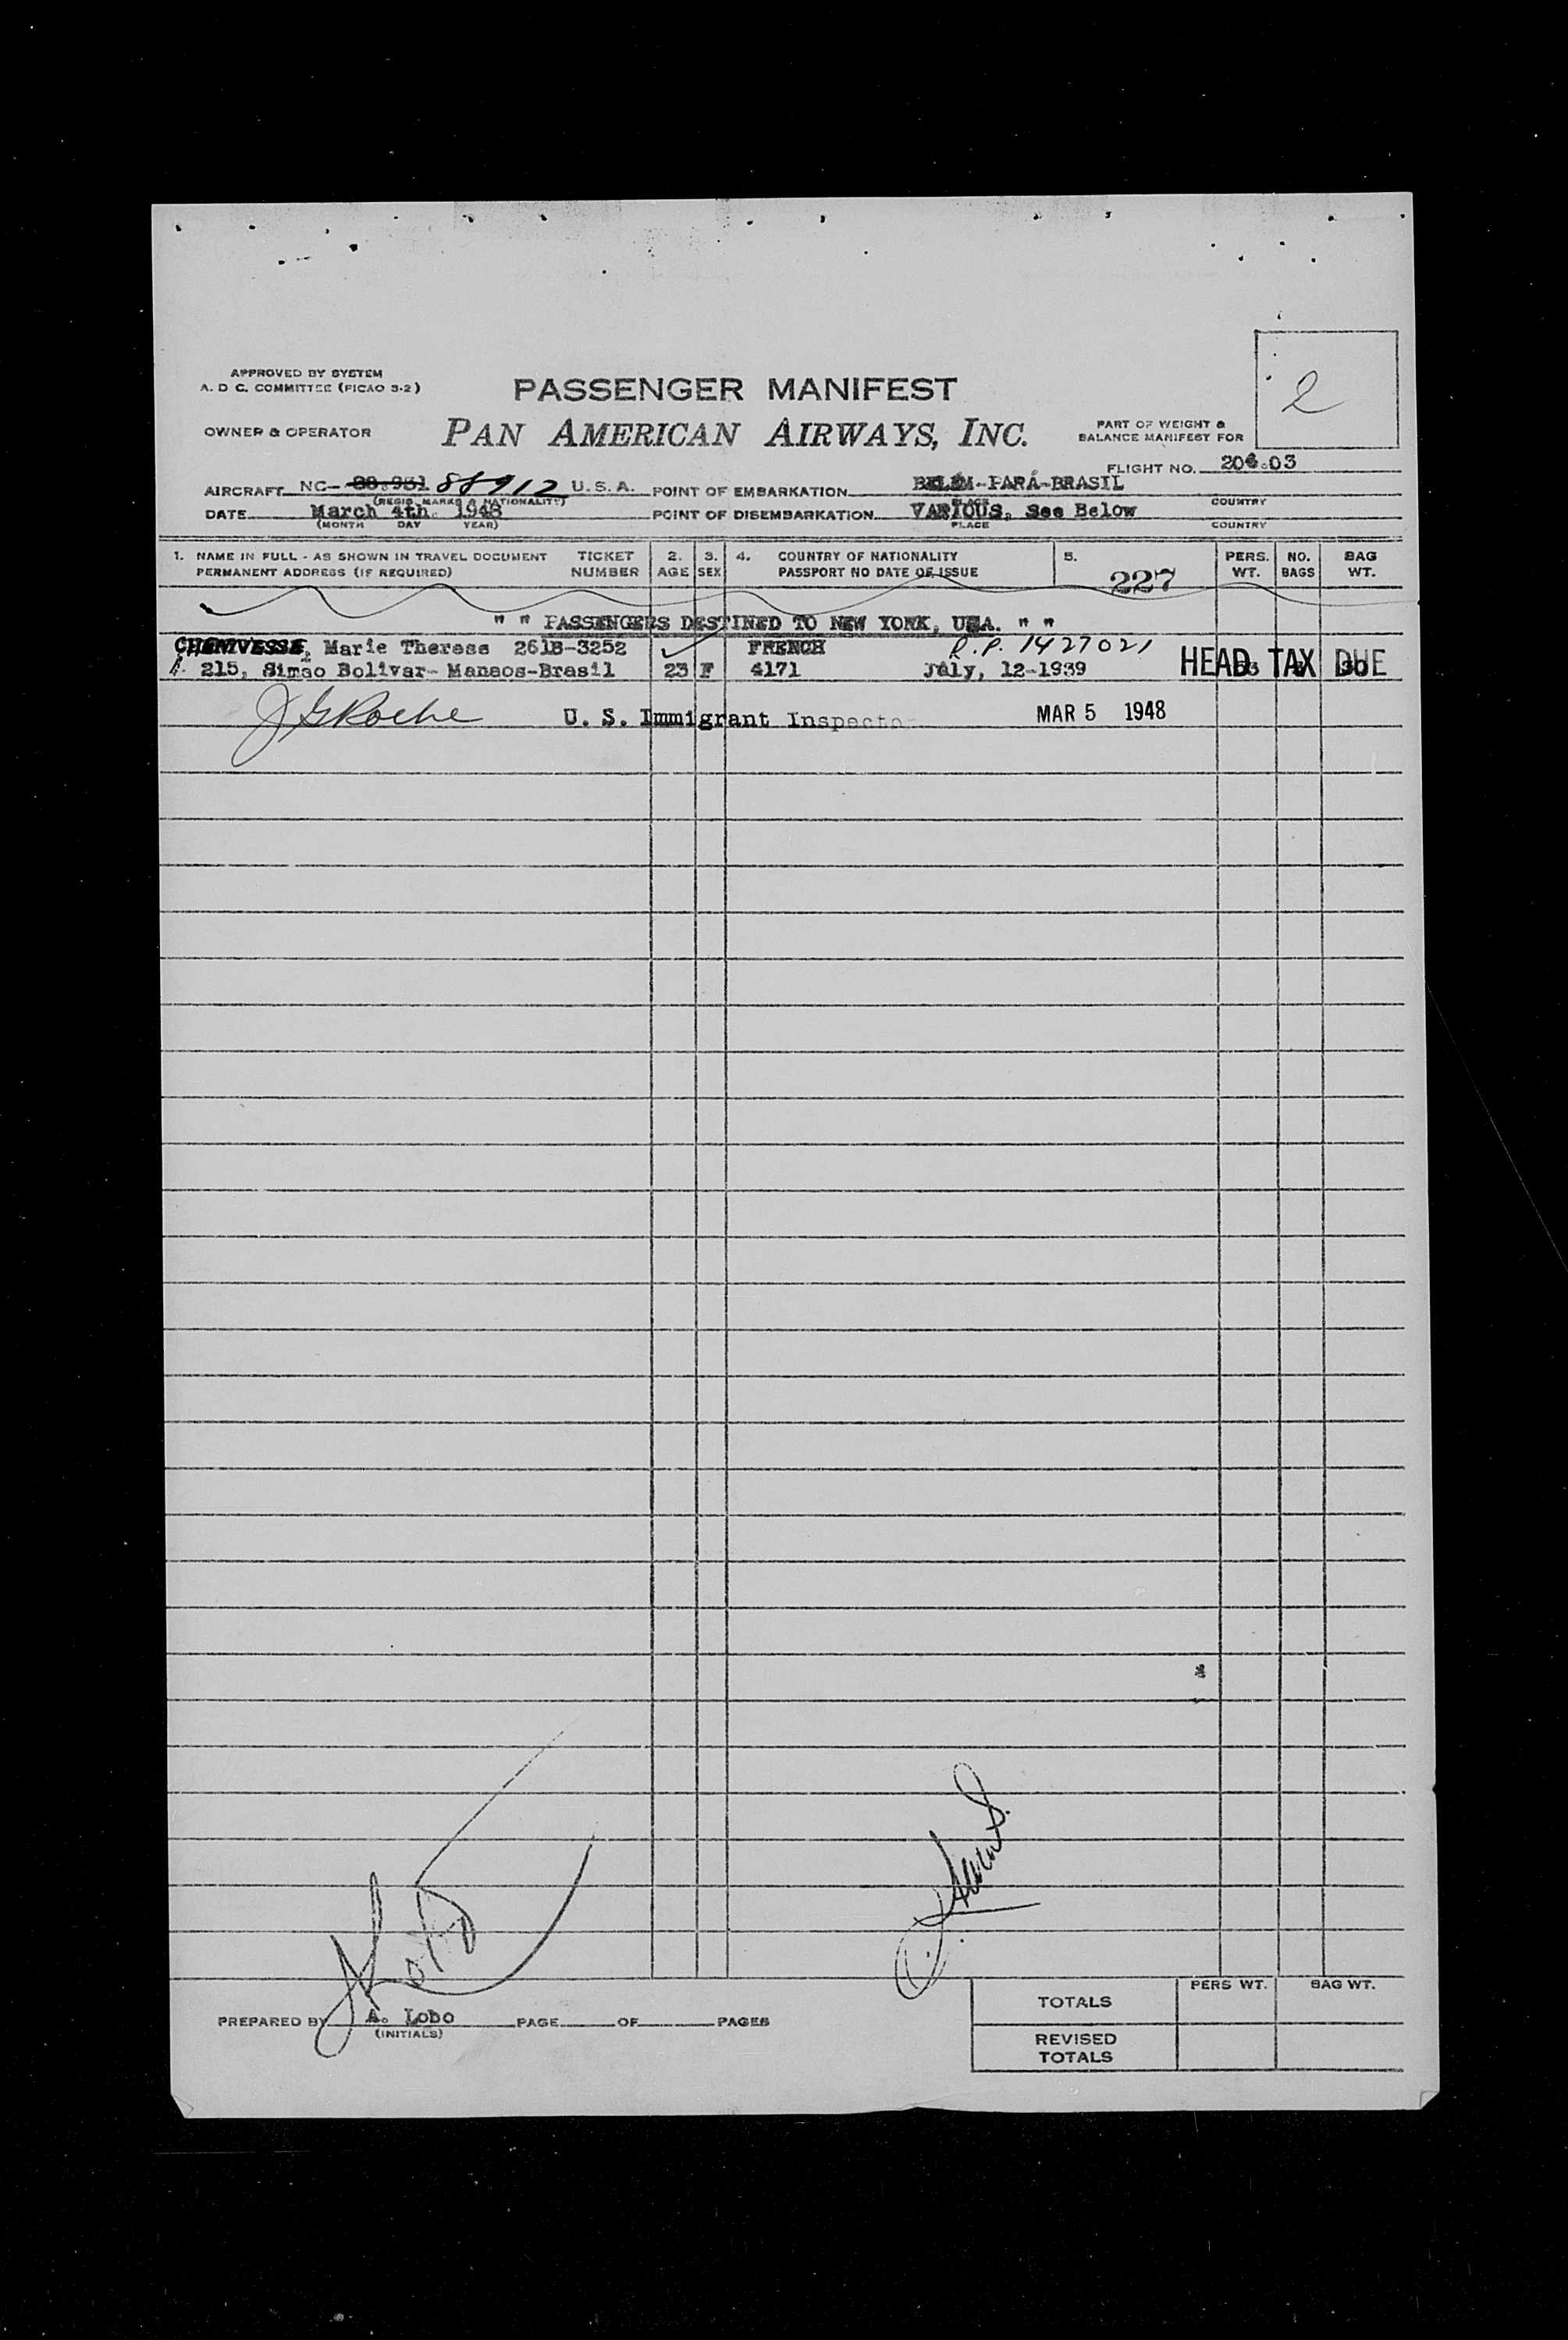 APPROVED BY SYSTEM
A. D C. COMMITTEE (PICAO 3-2)
PASSENGER MANIFEST
2
OWNER & OPERATOR
PAN AMERICAN AIRWAYS, INC.
PART OF WEIGHT &
BALANCE MANIFEST FOR
FLIGHT NO. 203
AIRCRAFT NC- 88912 U. S. A.
(REGIS. MARKS & NATIONALITY)
POINT OF EMBARKATION BELÉM-PARÁ-BRASIL
PLACE COUNTRY
DATE March 4th. 1948
(MONTH DAY YEAR)
POINT OF DISEMBARKATION VARIOUS, See Below
PLACE COUNTRY
1. NAME IN FULL - AS SHOWN IN TRAVEL DOCUMENT TICKET 2. 3. 4. COUNTRY OF NATIONALITY 5. PERS. NO. BAG
PERMANENT ADDRESS (IF REQUIRED) NUMBER AGE SEX PASSPORT NO DATE OF ISSUE 227 WT. BAGS WT.
" " PASSENGERS DESTINED TO NEW YORK, USA. " "
Marie Therese 261B-3252 FRENCH P.P. 1427021
215, Simão Bolivar- Manaos-Brasil 23 F 4171 July, 12-1939 HEAD TAX DUE
J G Roche U. S. Immigrant Inspector MAR 5 1948
PREPARED BY A. Lobo PAGE OF PAGES
(INITIALS)
PERS WT. BAG WT.
TOTALS
REVISED
TOTALS